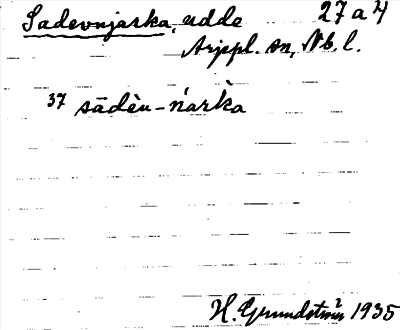 Sadevnjarka, udde 27 a 4
Arjepl. sn, Nb. l.
37 sādèu-ńarkà
H. Grundström 1935